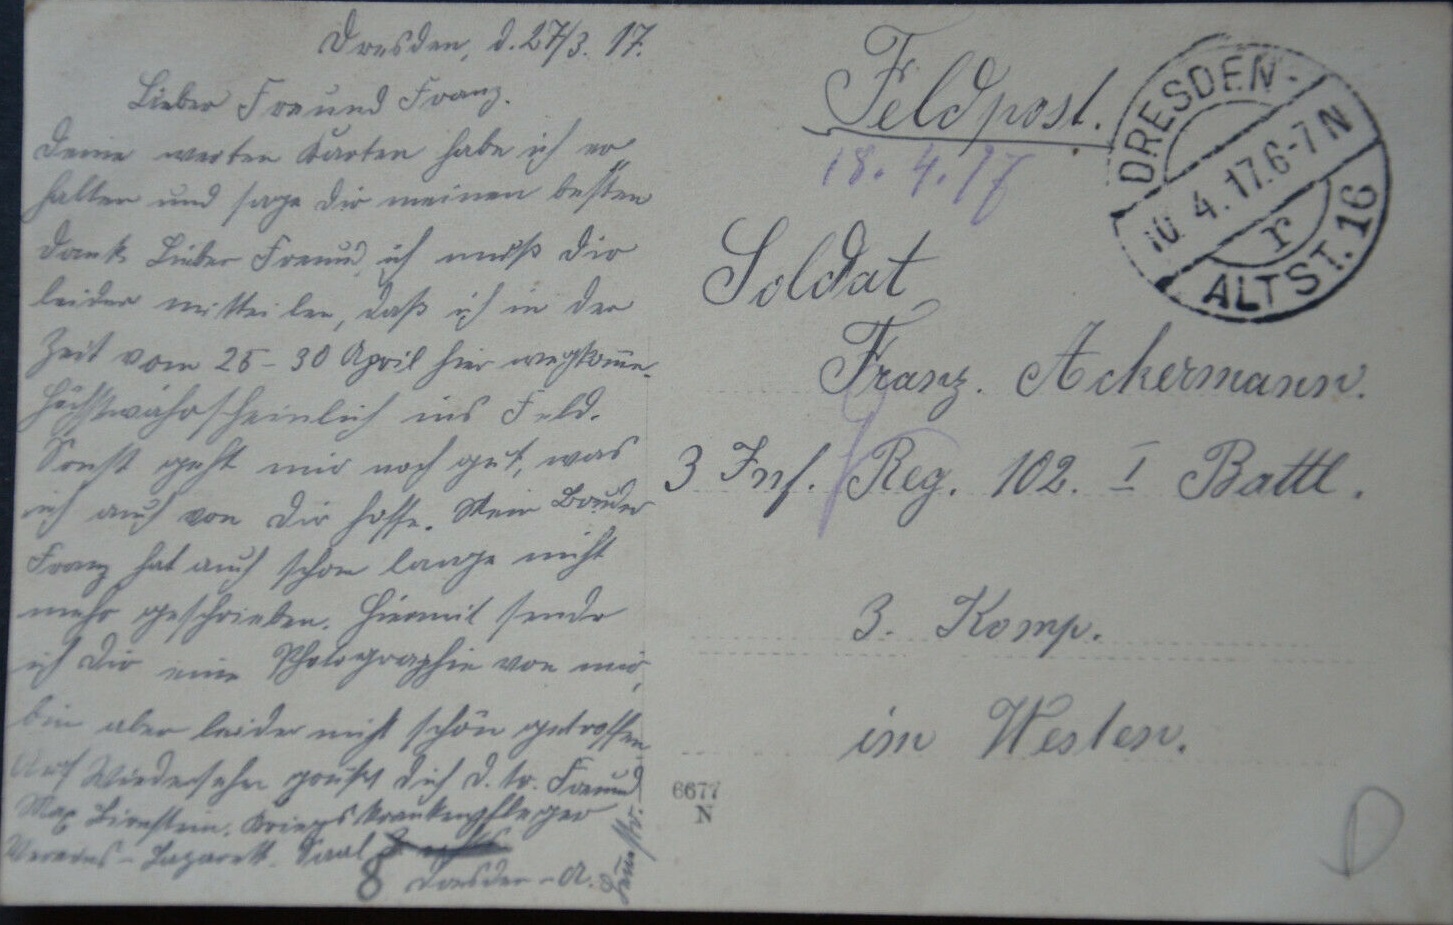 Dresden, d. 27/3. 17.
Lieber Freund Franz.
Deine werten Karten habe ich er
halten und sage Dir meinen besten
Dank. Lieber Freund, ich muß Dir
leider mitteilen, daß ich in der
Zeit vom 25 - 30 April hier wegkomme.
Höchstwahrscheinlich ins Feld.
Sonst geht mir noch gut, was
ich auch von Dir hoffe. Mein Bruder
Franz hat auch schon lange nicht
mehr geschrieben. Hiermit sende
ich Dir eine Photographie von mir,
bin aber leider nicht schön getroffen
Auf Wiedersehn grüßt Dich d. tr. Freund
Max Birnstein. Kriegskrankenpfleger
Vereins-Lazarett. Saal
8 Dresden-A.
Feldpost.
18. 4. 17
Soldat
Franz. Ackermann.
3 Inf. Reg. 102. I Battl.
3. Komp.
im Westen.
DRESDEN-
10 4.17.6-7N
r
ALTST.16
6677
N
D